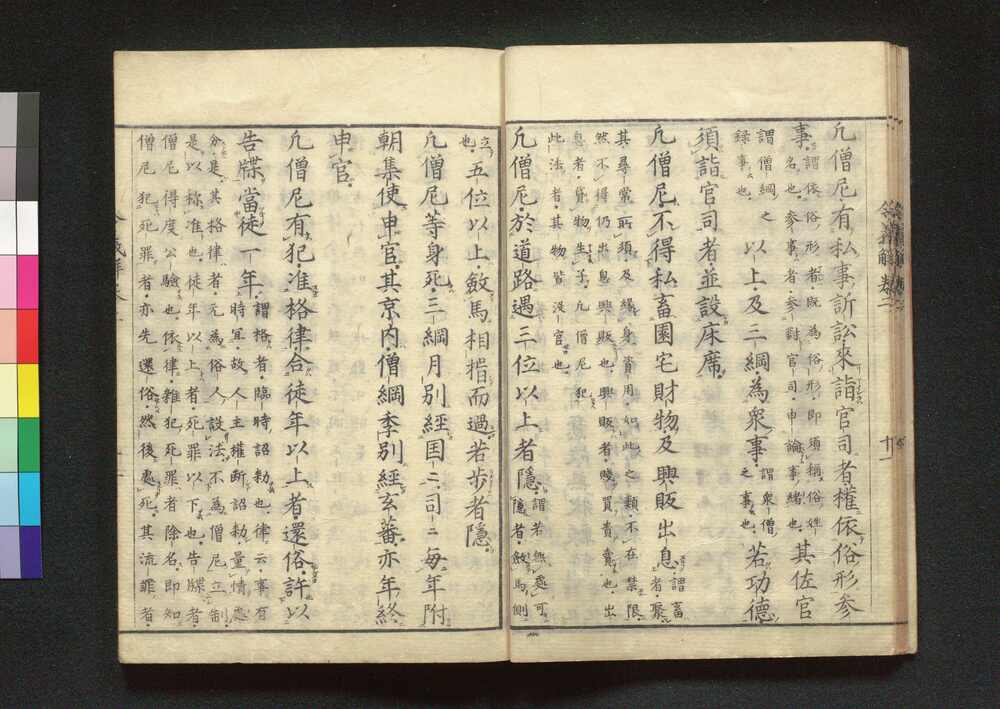 凢僧尼有私事訴訟來詣官司者權依俗形參
事謂依俗形者既為俗形即須稱俗姓
名也參事者參對官司申論事緒也其佐官
謂僧綱之
録事也以上及三綱為衆事謂衆僧
之事也若功德
須詣官司者並設床席
凢僧尼不得私畜園宅財物及興販出息謂畜
者聚
其尋常所須及縁身資用如此之類不在禁限
然不得仍出息興販也興販者賤買貴賣也出
息者貸物生子凢僧尼犯
此法者其物皆没官也
凢僧尼於道路遇三位以上者隱謂若無處可
隱者斂馬側
立
也五位以上斂馬相揖而過若步者隱
凢僧尼等身死三綱月別經国司国司毎年附
朝集使申官其京内僧綱季別經玄蕃亦年終
申官
凢僧尼有犯准格律合徒年以上者還俗許以
告牒當徒一年謂格者臨時詔勅也律云事有
時冝故人主權斷詔勅量情處
分是其格律者元為俗人設法不為僧尼立制
是以稱准也徒年以上者死罪以下也告牒者
僧尼得度公驗也依律雜犯死罪者除名即知
僧尼犯死罪者亦先還俗然後處死其流罪者
令義解卷二
十